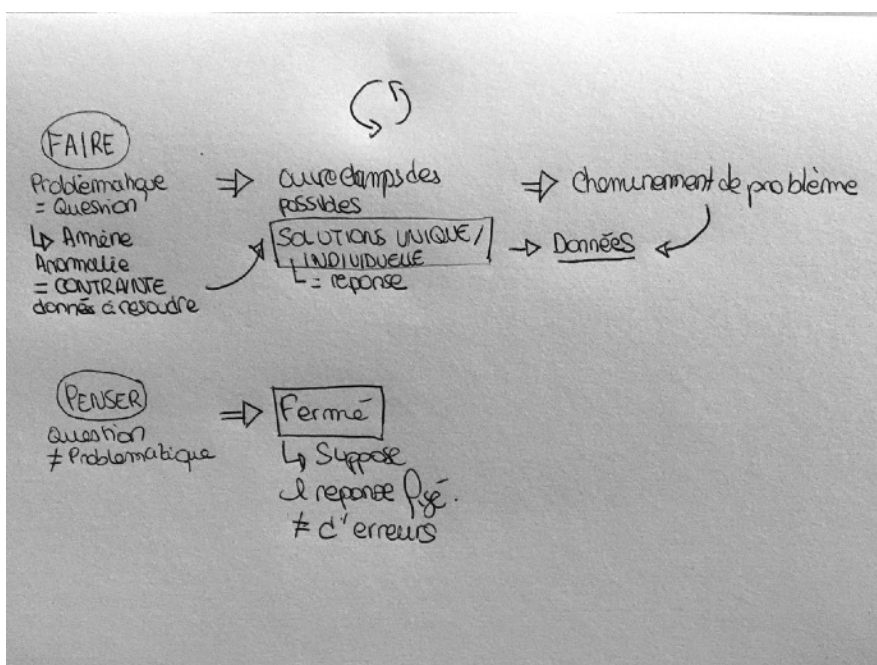 FAIRE
Problématique
= Question
↳ Amène
Anomalie
= CONTRAINTE
donnés à resoudre
⇒ ouvre champs des
possibles
SOLUTIONS UNIQUE /
INDIVIDUELLE
= reponse
⇒ Cheminement de problème
→ Données
PENSER
Question
≠ Problematique
⇒ Fermé
↳ Suppose
1 reponse figé.
≠ d'erreurs